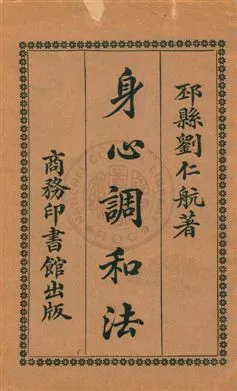 邳縣劉仁航著
身心調和法
商務印書館出版